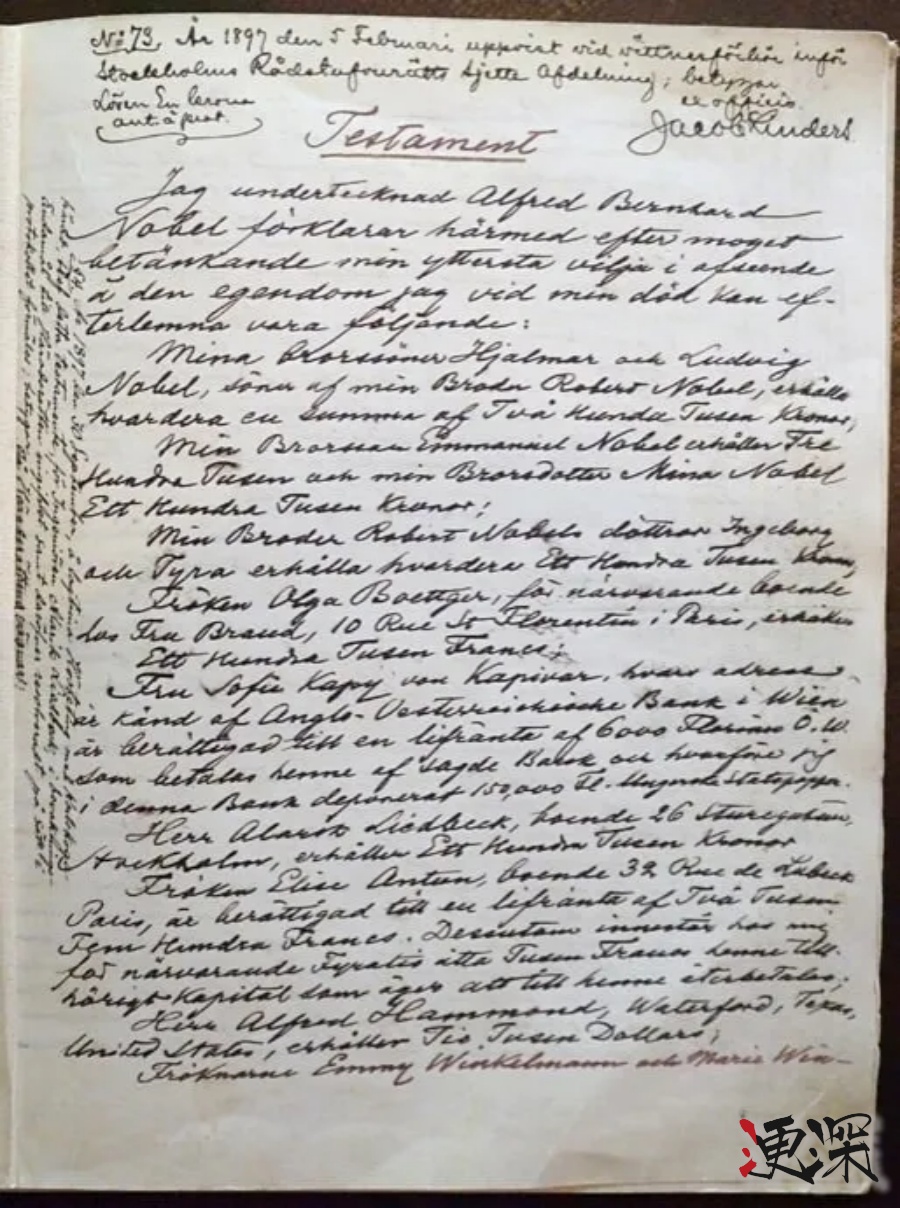 No 73. År 1897 den 5 Februari uppvist vid vittnesförhör inför
Stockholms Rådstufvurätts sjette Afdelning; betygar
Lösen En krona
ex officio
Testament
Jag undertecknad Alfred Bernhard
Nobel förklarar härmed efter moget
betänkande min yttersta vilja i afseende
å den egendom jag vid min död kan ef-
terlemna vara följande:
Mina brorsöner Hjalmar och Ludvig
Nobel, söner af min Broder Robert Nobel, erhålla
hvardera en summa af Två Hundra Tusen Kronor;
Min Brorson Emmanuel Nobel erhåller Tre
Hundra Tusen och min Brorsdotter Mina Nobel
Ett Hundra Tusen Kronor;
Min Broder Robert Nobels döttrar Ingeborg
och Tyra erhålla hvardera Ett Hundra Tusen Kronor;
Fröken Olga Boettger, för närvarande boende
hos Fru Brand, 10 Rue St Florentin i Paris, erhåller
Ett Hundra Tusen Francs;
Fru Sofie Kapy von Kapivar, hvars adress
är känd af Anglo-Oesterreichische Bank i Wien
är berättigad till en lifränta af 6000 Florins Ö.W.
som betalas henne af sagde Bank och hvarföre jag
i denna Bank deponerat 150,000 Fl. i Ungerska Statspapper.
Herr Alarik Liedbeck, boende 26 Sturegatan,
Stockholm, erhåller Ett Hundra Tusen Kronor
Fröken Elise Antun, boende 32 Rue de Lubeck
Paris, är berättigad till en lifränta af Två Tusen
Fem Hundra Francs. Dessutom innestår hos mig
för närvarande Fyratio åtta Tusen Francs henne till-
hörigt Kapital som äger att till henne återbetalas;
Herr Alfred Hammond, Waterford, Texas,
United States, erhåller Tio Tusen Dollars;
Fröknarne Emmy Winkelmann och Marie Win-
更深